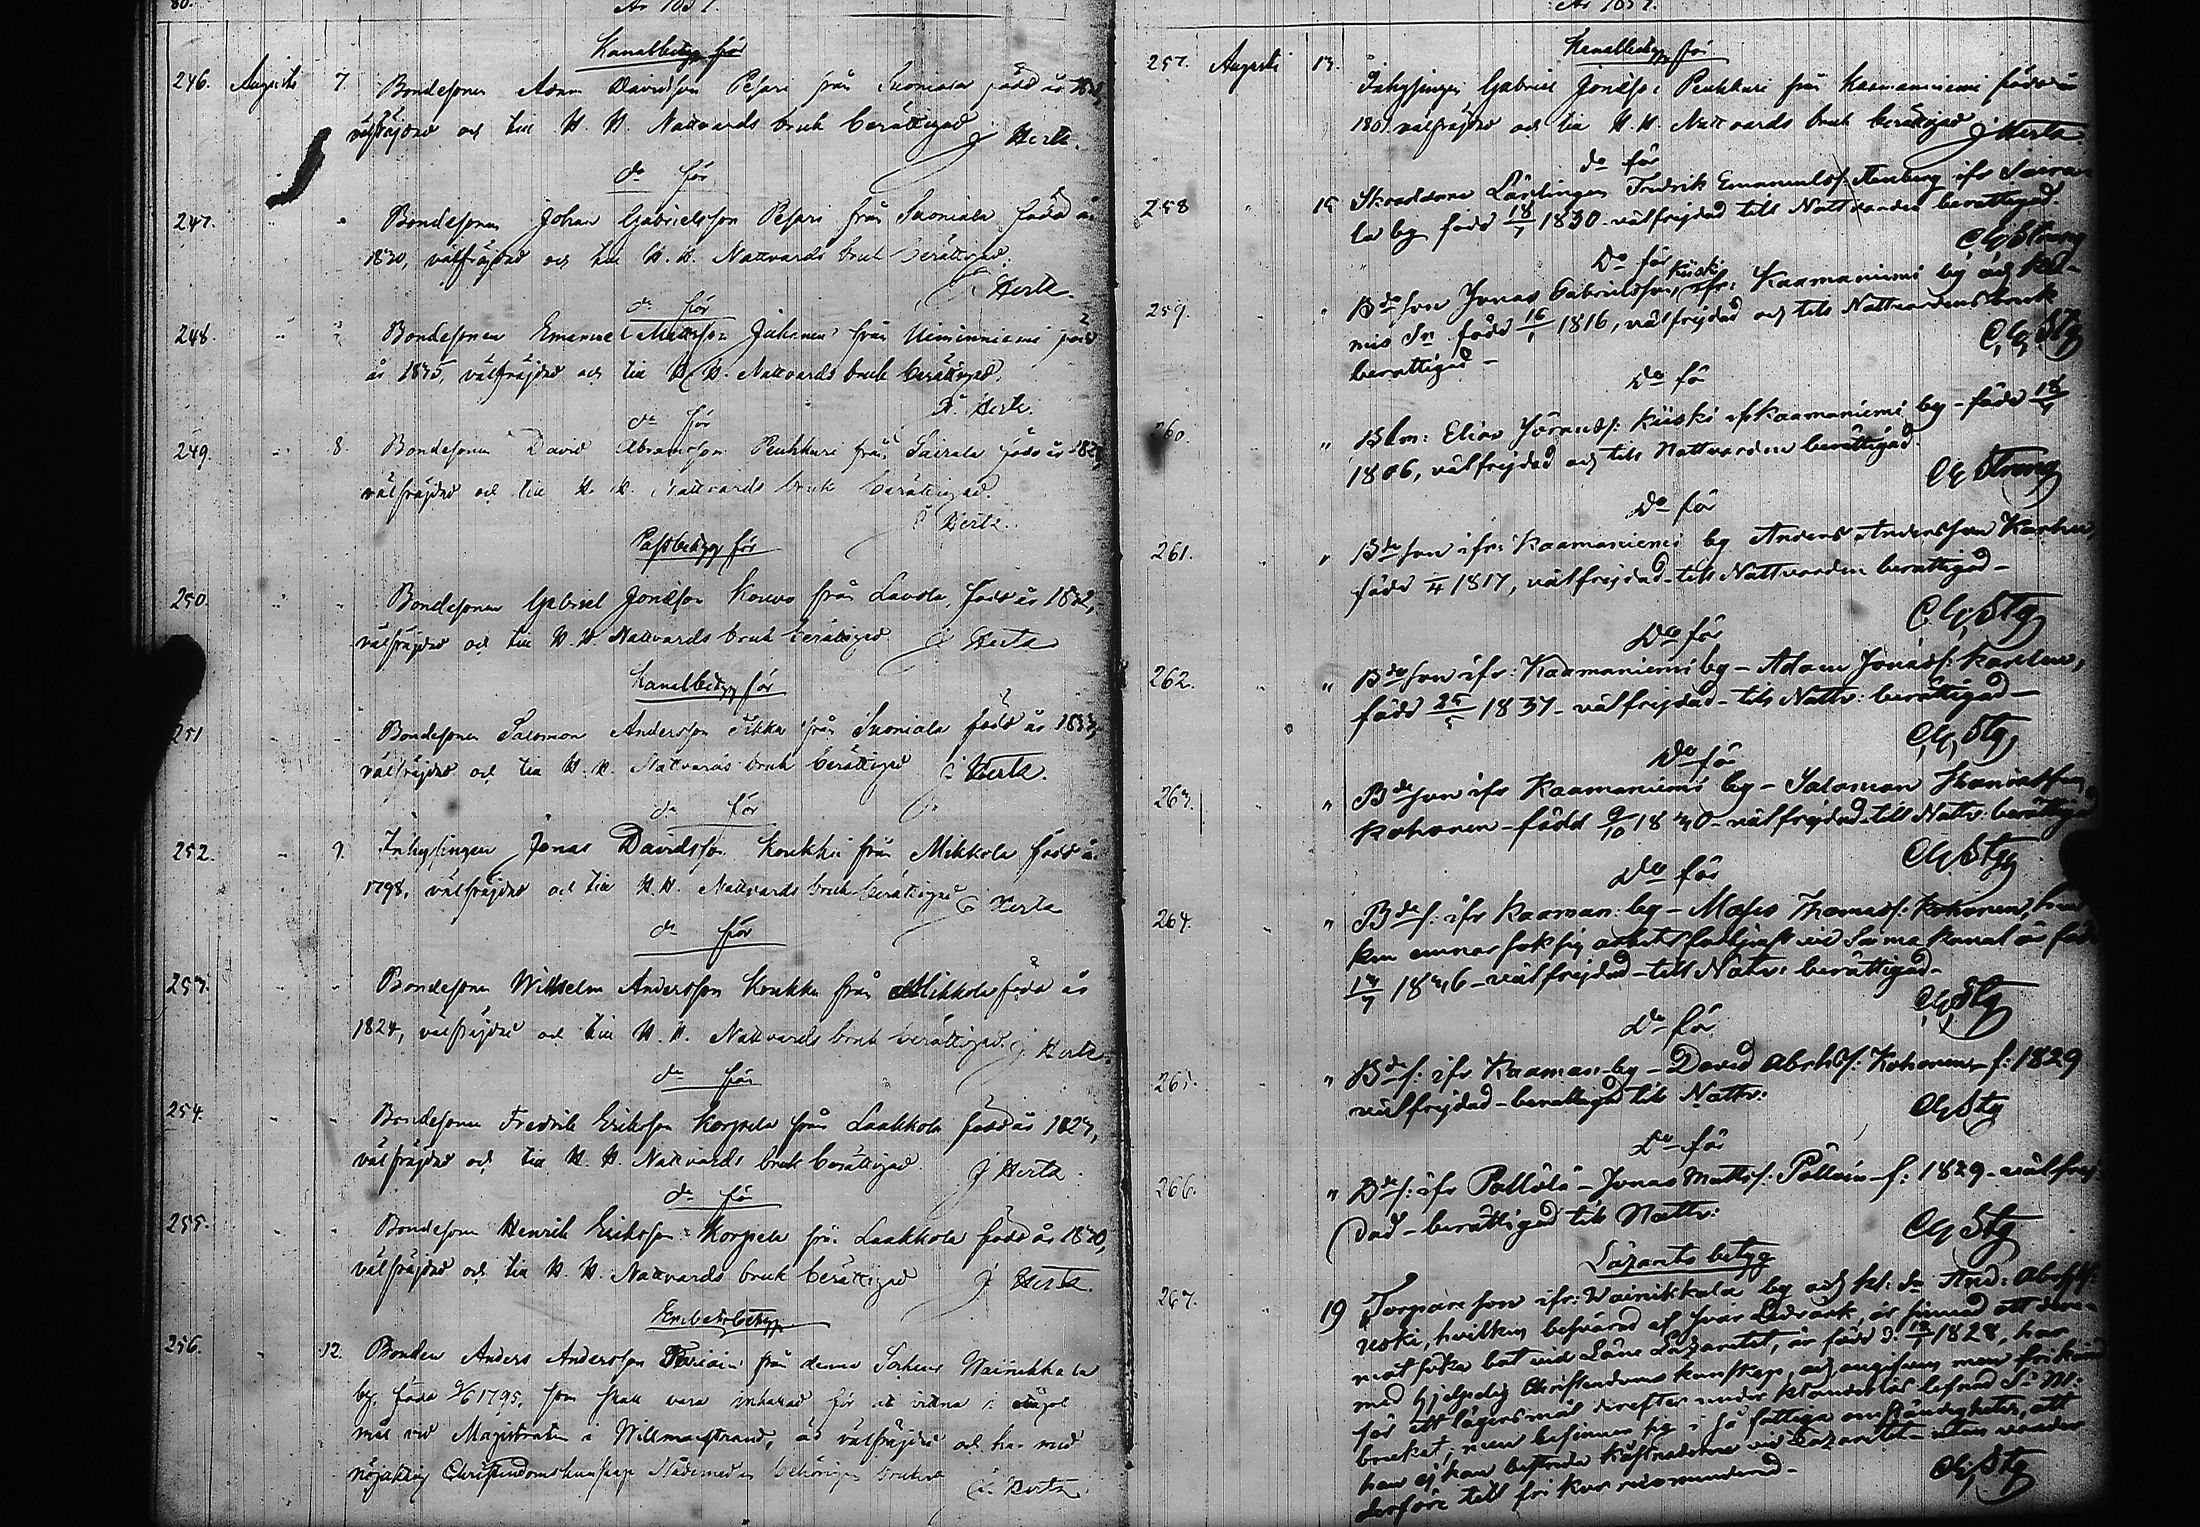 80.
År 1851.
Kanalbetyg för
246. Augusti 7. Bondesonen Adam Davidsson Pesari från Suoniala född år
välfräjdad och till H. H. Nattvards bruk berättigad J Herta.
do för
247. " Bondesonen Johan Gabrielsson Pesari från Suoniala född år
1830, välfräjdad och till H. H. Nattvards bruk berättigad.
J Herta.
do för
248. Bondesonen Emanuel Mattsson från född
år 1835, välfräjdad och till H. H. Nattvards bruk berättigad.
J. Herta.
do för
249. 8. Bondesonen David Abramsson Penkkuri från Sairala född år
välfräjdad och till H. H. Nattvards bruk berättigad.
J Herta.
Passbetyg för
250. Bondesonen Gabriel Jonasson Kouvo från Lavola, född år 1832,
välfräjdad och till H. H. Nattvards bruk berättigad J Herta
Kanalbetyg för
251 Bondesonen Salomon Andersson Sikka från Suoniala född år 1833,
välfräjdad och till H. H. Nattvards bruk berättigad J Herta.
do för
252. 9. Inhysingen Jonas Davidsson Koukku från Mikkola född år
1798, välfräjdad och till H. H. Nattvards bruk berättigad J Herta
do för
253. Bondesonen Wilhelm Andersson Koukku från Mikkola född år
1824, välfräjdad och till H. H. Nattvards bruk berättigad. J Herta.
do för
254. Bondesonen Fredrik Eriksson Korpela från Laakkola född år 1827,
välfräjdad och till H. H. Nattvards bruk berättigad. J Herta.
do för
255. Bondesonen Henrik Eriksson Korpela från Laakkola född år 1830,
välfräjdad och till H. H. Nattvards bruk berättigad J Herta.
256. 12. Bonden Anders Andersson från denna Sockens Wainikkala
by, född 9/6 1795, som skall vara inkallad för att vittna i
mål vid Magistraten i Willmanstrand, är välfräjdad och har med
nöjaktig Christendomskunskap Nådemedlen behörigen brukat
J. Herta
År 1851.
Kanalbetyg för
257. Augusti 13. Inhysingen Gabriel Jonasson Penkkuri från Kaamaniemi född år
1801. välfräjdad och till H. H. Nattvards bruk berättigad J Herta.
do för
258 " 15 Skraddare Lärlingen Fredrik Emanuels: Stenberg ifr Saira-
la by född 18/1 1830. välfrejdad till Nattvarden berättigad.
C G Strang
Do för
259. " Bdeson Jonas Gabrielsson Kiiski, ifr: Kaamaniemi by och Kd-
mis Sn född 16/1 1816, välfrejdad och till Nattvardens bruk
berättigad –
C. G. Stg
Do fö
260. " Bdn: Elias Jörans: Kiiski ifr Kaamaniemi by – född 18/1
1806, välfrejdad och till Nattvarden berättigad.
CG Strang
Do för
261. " Bdeson ifr: Kaamaniemi by Anders Andersson Karhu,
född 1817, välfrejdad – till Nattvarden berättigad –
C G Stg
Do för
262. " Bdeson ifr: Kaamaniemi by – Adam Jonass: Karhu,
född 25/5 1837 – välfrejdad – till Nattv: berättigad –
CG Stg,
Do fö
263. " Bdeson ifr Kaamaniemi by – Salomon Thomasson
Kohonen – född 9/10 1830 – välfrejdad – till Nattv: berättigad
CG Stg
Do för
264. " Bde s: ifr Kaaman: by – Moses Thomass: Kohonen, hvil
ken ernar söka sig arbetsförtjenst vid Saima Kanal är född
13/7 1836 – välfrejdad – till Nattv: berättigad –
CG Stg
do för
265. " Bde s: ifr Kaaman by – David Abrhs: Kohonen – f: 1829
välfrejdad – berättigad till Nattv:
CG Stg
Do för
266. " Bde s: ifr Pöllölä – Jonas Matts: Pöllöin – f: 1829 – välfrej-
dad – berättigad till Nattv:
CG Stg
Lazaretts betyg
267. 19 Torpare son ifr: Wainikkala by och hl: Sn And:
hvilken besvärad af är sinnad att
söka bot vid Läns Lazarettet, är född d. 18/1 1828, har
med hjelplig Christendoms kunskap, och
för ett lägersmål derefter under klanderlös lefnad S: M:
brukat; men befinner sig i så fattiga omständigheter, att
han ej kan bestrida kostnaderne vid Lazarettet – utan varder
derföre till fri kur recommenderad –
CG Stg